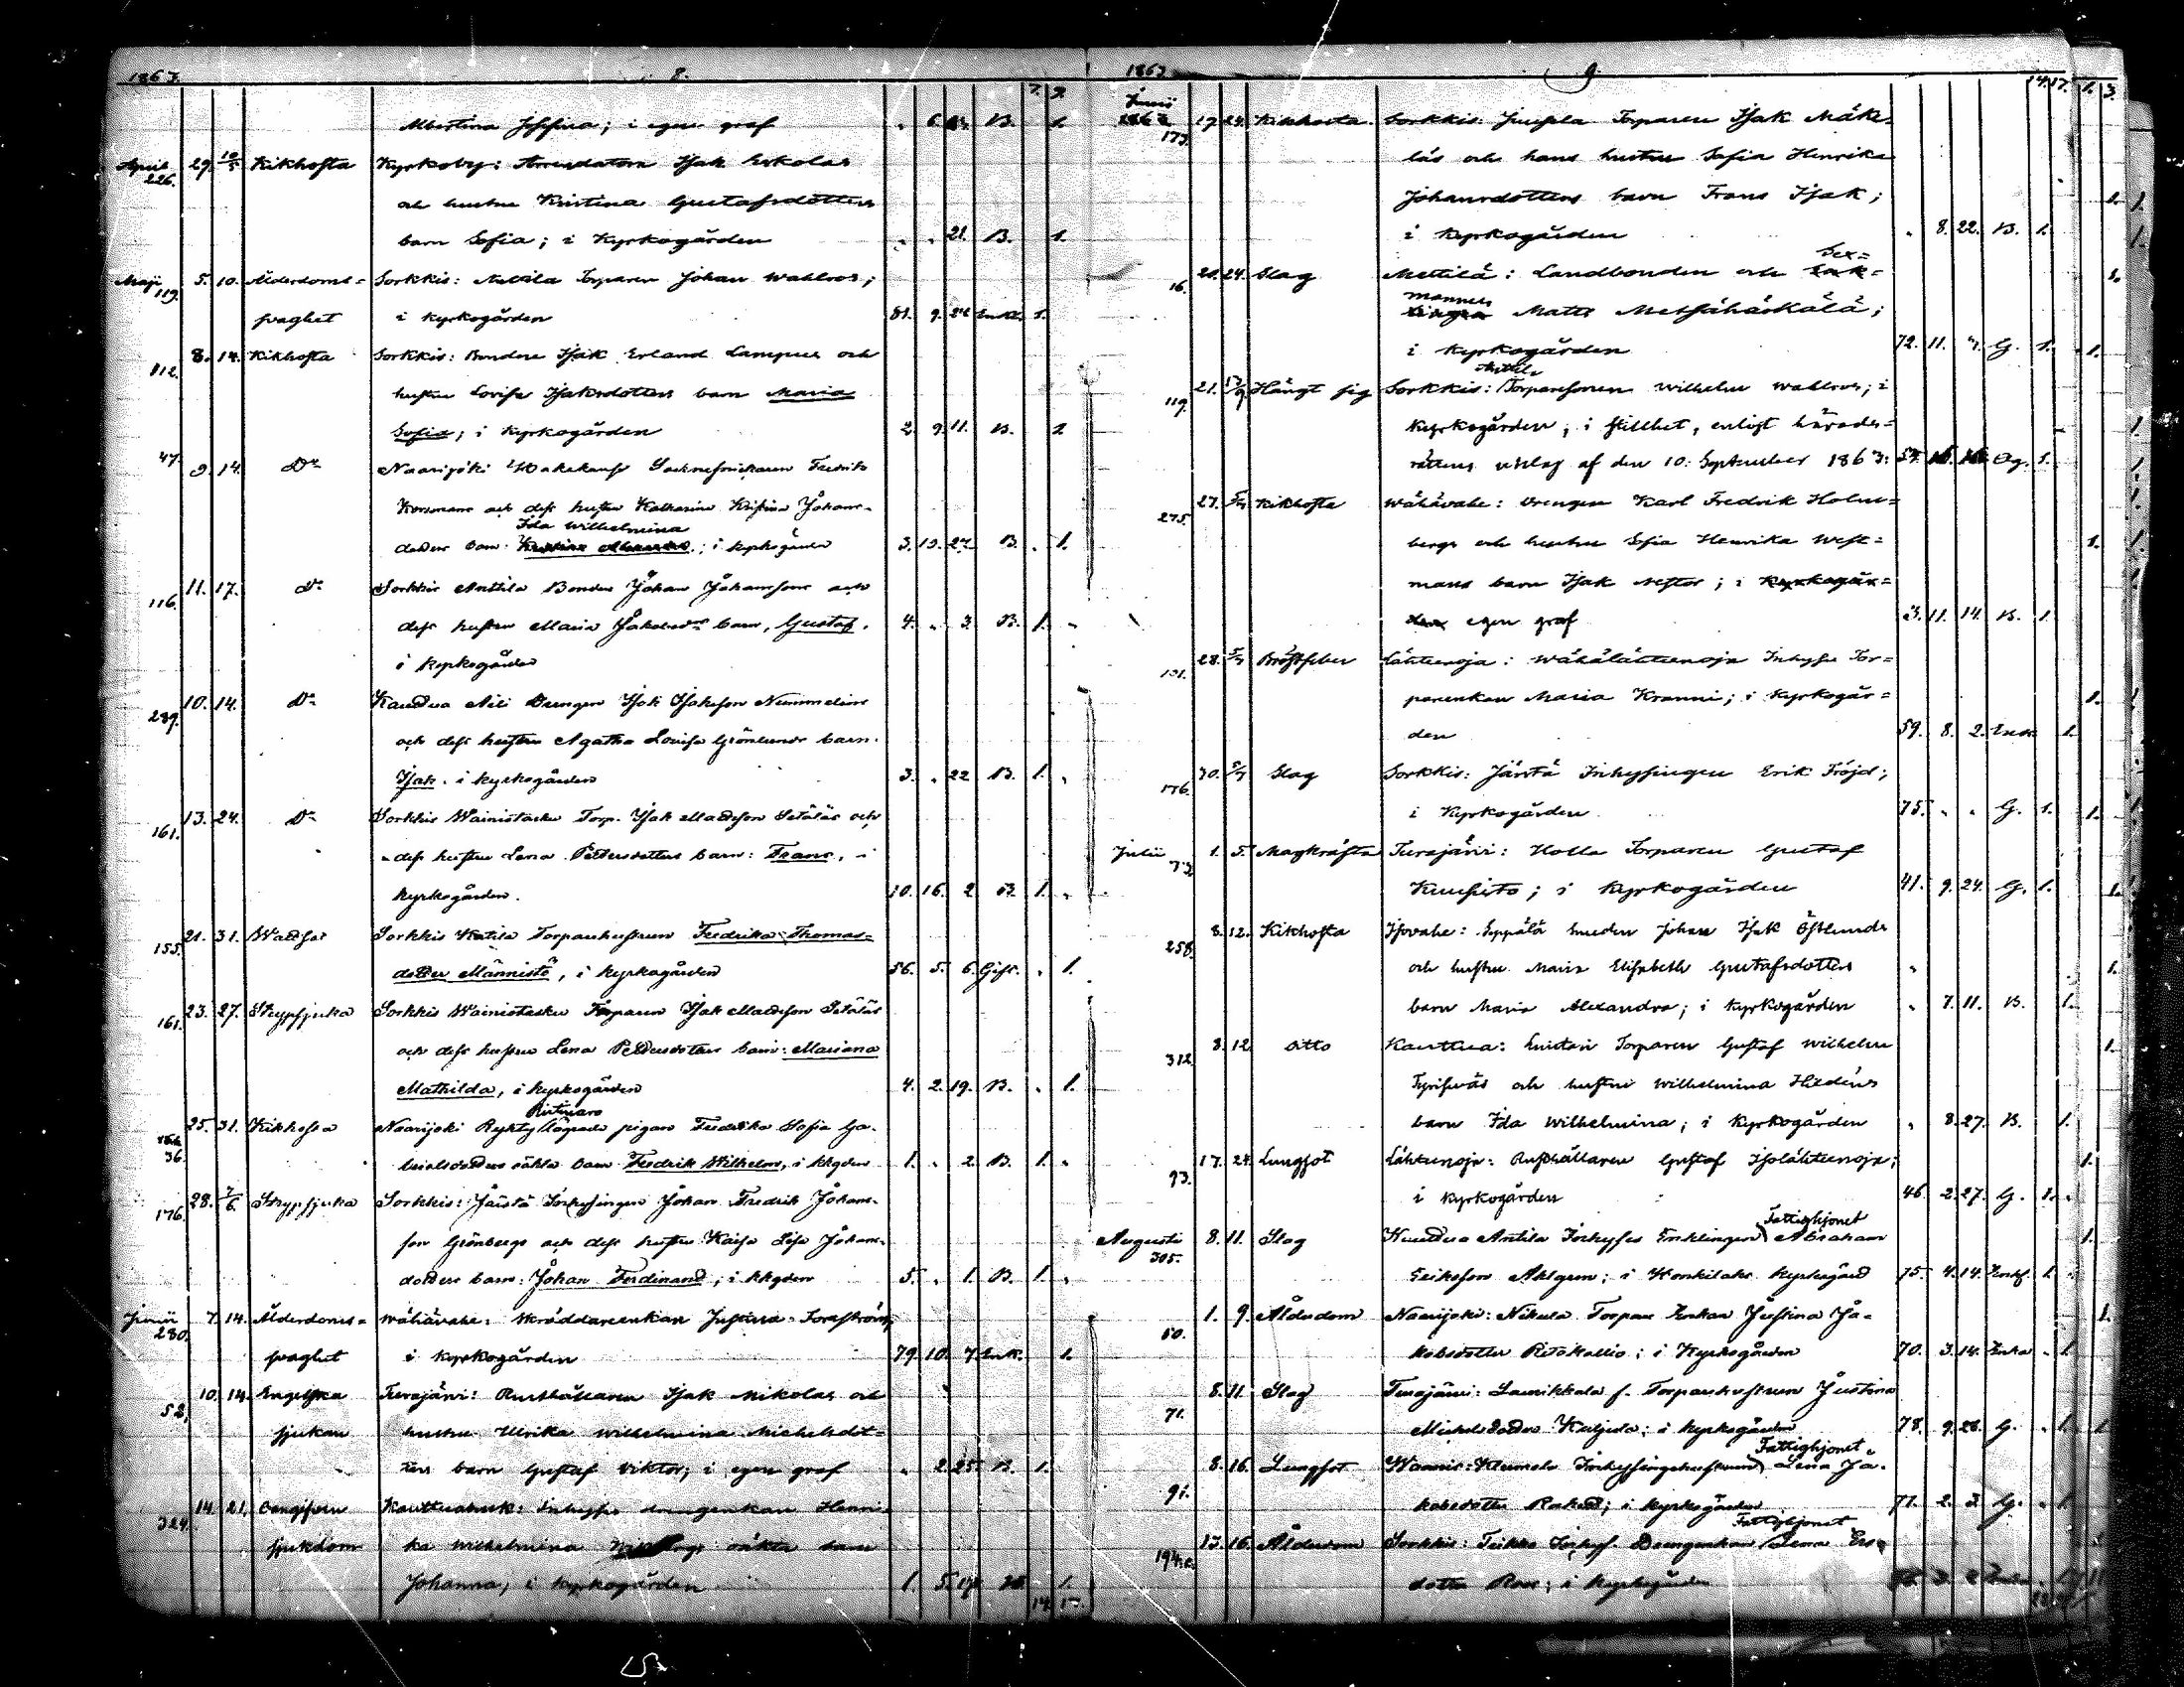 1863. 8.
7. 7.
Albertina Josefina; i egen graf " 6. B. 1.
April 226. 29. 10/5 Kikhosta Kyrkoby: Arrendatorn Isak Eskolas
och hustru Kristina Gustafsdotters
barn Sofia; i Kyrkogården " " 21. B. 1.
Maji 119. 5. 10. Ålderdoms= Sorkkis: Anttila Torparen Johan Wahlroos;
svaghet i kyrkogården 81. 9. 24 Enkl. 1.
112. 8. 14. Kikhosta Sorkkis: Bonden Isak Erland Lampus och
hustru Lovisa Isaksdotters barn Maria
Sofia; i Kyrkogården 2. 9. 11. B. 1
47. 9. 14. Do Naarijoki
dess hustru Katharina Kristina Johans-
Ida Wilhelmina
dotters barn ; i kyrkogården 3. 10. 27. B. " 1.
116. 11. 17. Do Sorkkis Anttila Bonden Johan Johanssons och
dess hustru Maria Jakobsdrs barn, Gustaf.
i kyrkogården 4. " 3. B. 1. "
289. 10. 14. Do Kauttua Drengen Isak Isaksson Nummelins
och dess hustru Agatha Lovisa Grönlunds barn.
Isak. i kyrkogården 3. " 22 B. 1. "
161. 13. 24. Do Sorkkis Wainiotasku Torp. Isak Mattsson Setäläs och
dess hustru Lena Pettersdotters barn: Frans, i
kyrkogården. 10. 16. 2 B. 1. "
155. 21. 31. Wattsot Sorkkis Katila Torparehustrun Fredrika Thomas=
dotter Männistö, i kyrkogården 56. 5. 6. Gift. " 1.
161. 23. 27. Strypsjuka Sorkkis Wainiotasku Torparen Isak Mattsson Setäläs
och dess hustru Lena Pettersdotters barn: Mariana
Mathilda, i kyrkogården 4. 2. 19. B. " 1.
36. 25. 31. Kikhosta Naarijoki pigan Fredrika Sofia Ga-
brielsdotters oäkta barn Fredrik Wilhelm, i kkgden 1. " 2. B. 1. "
176. 28. 7/6. Strypsjuka Sorkkis: Järstä Inhysingen Johan Fredrik Johans-
son Grönbergs och dess hustru Kaisa Lisa Johans-
dotters barn: Johan Ferdinand; i kkgden 5. " 1. B. 1. "
Junii 280. 7. 14. Ålderdoms= Wähävahe: Skräddareenkan Justina Forsström,
svaghet i kyrkogården 79. 10. 7. Enk. 1.
52. 10. 14. Engelska Turajärvi: Rusthållaren Isak Nikolas och
sjukan hustru Ulrika Wilhelmina Michelsdot=
ters barn Gustaf Viktor; i egen graf " 2. 25. B. 1.
324. 14. 21. Oangifven Kauttuabruk: Inhyses drengenkan Henri=
sjukdom ka Wilhelmina oäkta barn
Johanna; i Kyrkogården 1. 5. 1.
14. 1
1863 9.
14. 17. 1. 3.
Junii
173. 17. 24. Kikhosta Sorkkis: Jumpla Torparen Isak Mäke=
läs och hans hustru Sofia Henrika
Johansdotters barn Frans Isak;
i kyrkogården " 8. 22. B. 1.
16. 20. 24. Slag Mettilä: Landbonden och Sex=
mannen Matts Metsähäskälä;
i kyrkogården 72. 11. 7. G. 1.
Anttila
119. 21. Hängt sig Sorkkis: Torparesonen Wilhelm Wahlroos; i
Kyrkogården; i stillhet, enligt härads=
rättens utslag af den 10: September 1863: Og. 1.
275. 27. 5/7 Kikhosta Wähävahe: Drengen Karl Fredrik Holm=
bergs och hustru Sofia Henrika West=
mans barn Isak Nestor; i
egen graf 3. 11. 14. B. 1.
101. 28. 5/7 Bröstfeber Lähteenoja: Wähälähteenoja Inhyses Tor=
pareenkan Maria Kranni; i Kyrkogår=
den 59. 8. 2. Enk. 1.
176. 30. 5/7 Slag Sorkkis: Järstä Inhysingen Erik Fröjd;
i Kyrkogården 75. " " G. 1.
Julii 73. 1. 5. Magkräfta Turajärvi: Holla Torparen Gustaf
Kuusisto; i Kyrkogården 41. 9. 24. G. 1.
258. 8. 12. Kikhosta Isovahe: Seppälä Smeden Johan Isak Östlunds
och hustru Maria Elisabeth Gustafsdotters
barn Maria Alexandra; i Kyrkogården " 7. 11. B. 1.
312. 8. 12 ditto Kauttua: Torparen Gustaf Wilhelm
och hustru Wilhelmina Hildéns
barn Ida Wilhelmina; i Kyrkogården " 8. 27. B. 1.
93. 17. 24. Lungsot Lähteenoja: Rusthållaren Gustaf Isolähteenoja;
i kyrkogården 46. 2. 27. G. 1.
Fattighjonet
Augusti 305. 8. 11. Slag Kauttua Antila Inhyses Enklingen Abraham
Eriksson Ahlgren; i Honkilaks kyrkogård 75. 4. 14. Enkl. 1.
50. 1. 9. Ålderdom Naarijoki: Nikula Torpare Enkan Justina Ja-
kobsdotter Ristokallio; i Kyrkogården 70. 3. 14. Enka " 1.
71. 8. 11. Slag Turajärvi: Laurikkala f. Torparehustrun Justina
Michelsdotter Kuljula; i kyrkogården 78. 9. 26. G. " 1.
Fattighjonet
91. 8. 16. Lungsot Inhysingehustrun Lena Ja-
kobsdotter; i kyrkogården 77. 2. 3. G. " 1.
Fattighjonet
194. 13. 16. Ålderdom Sorkkis: Inhys. Drengenkan Lena
dotter Roos; i kyrkogården